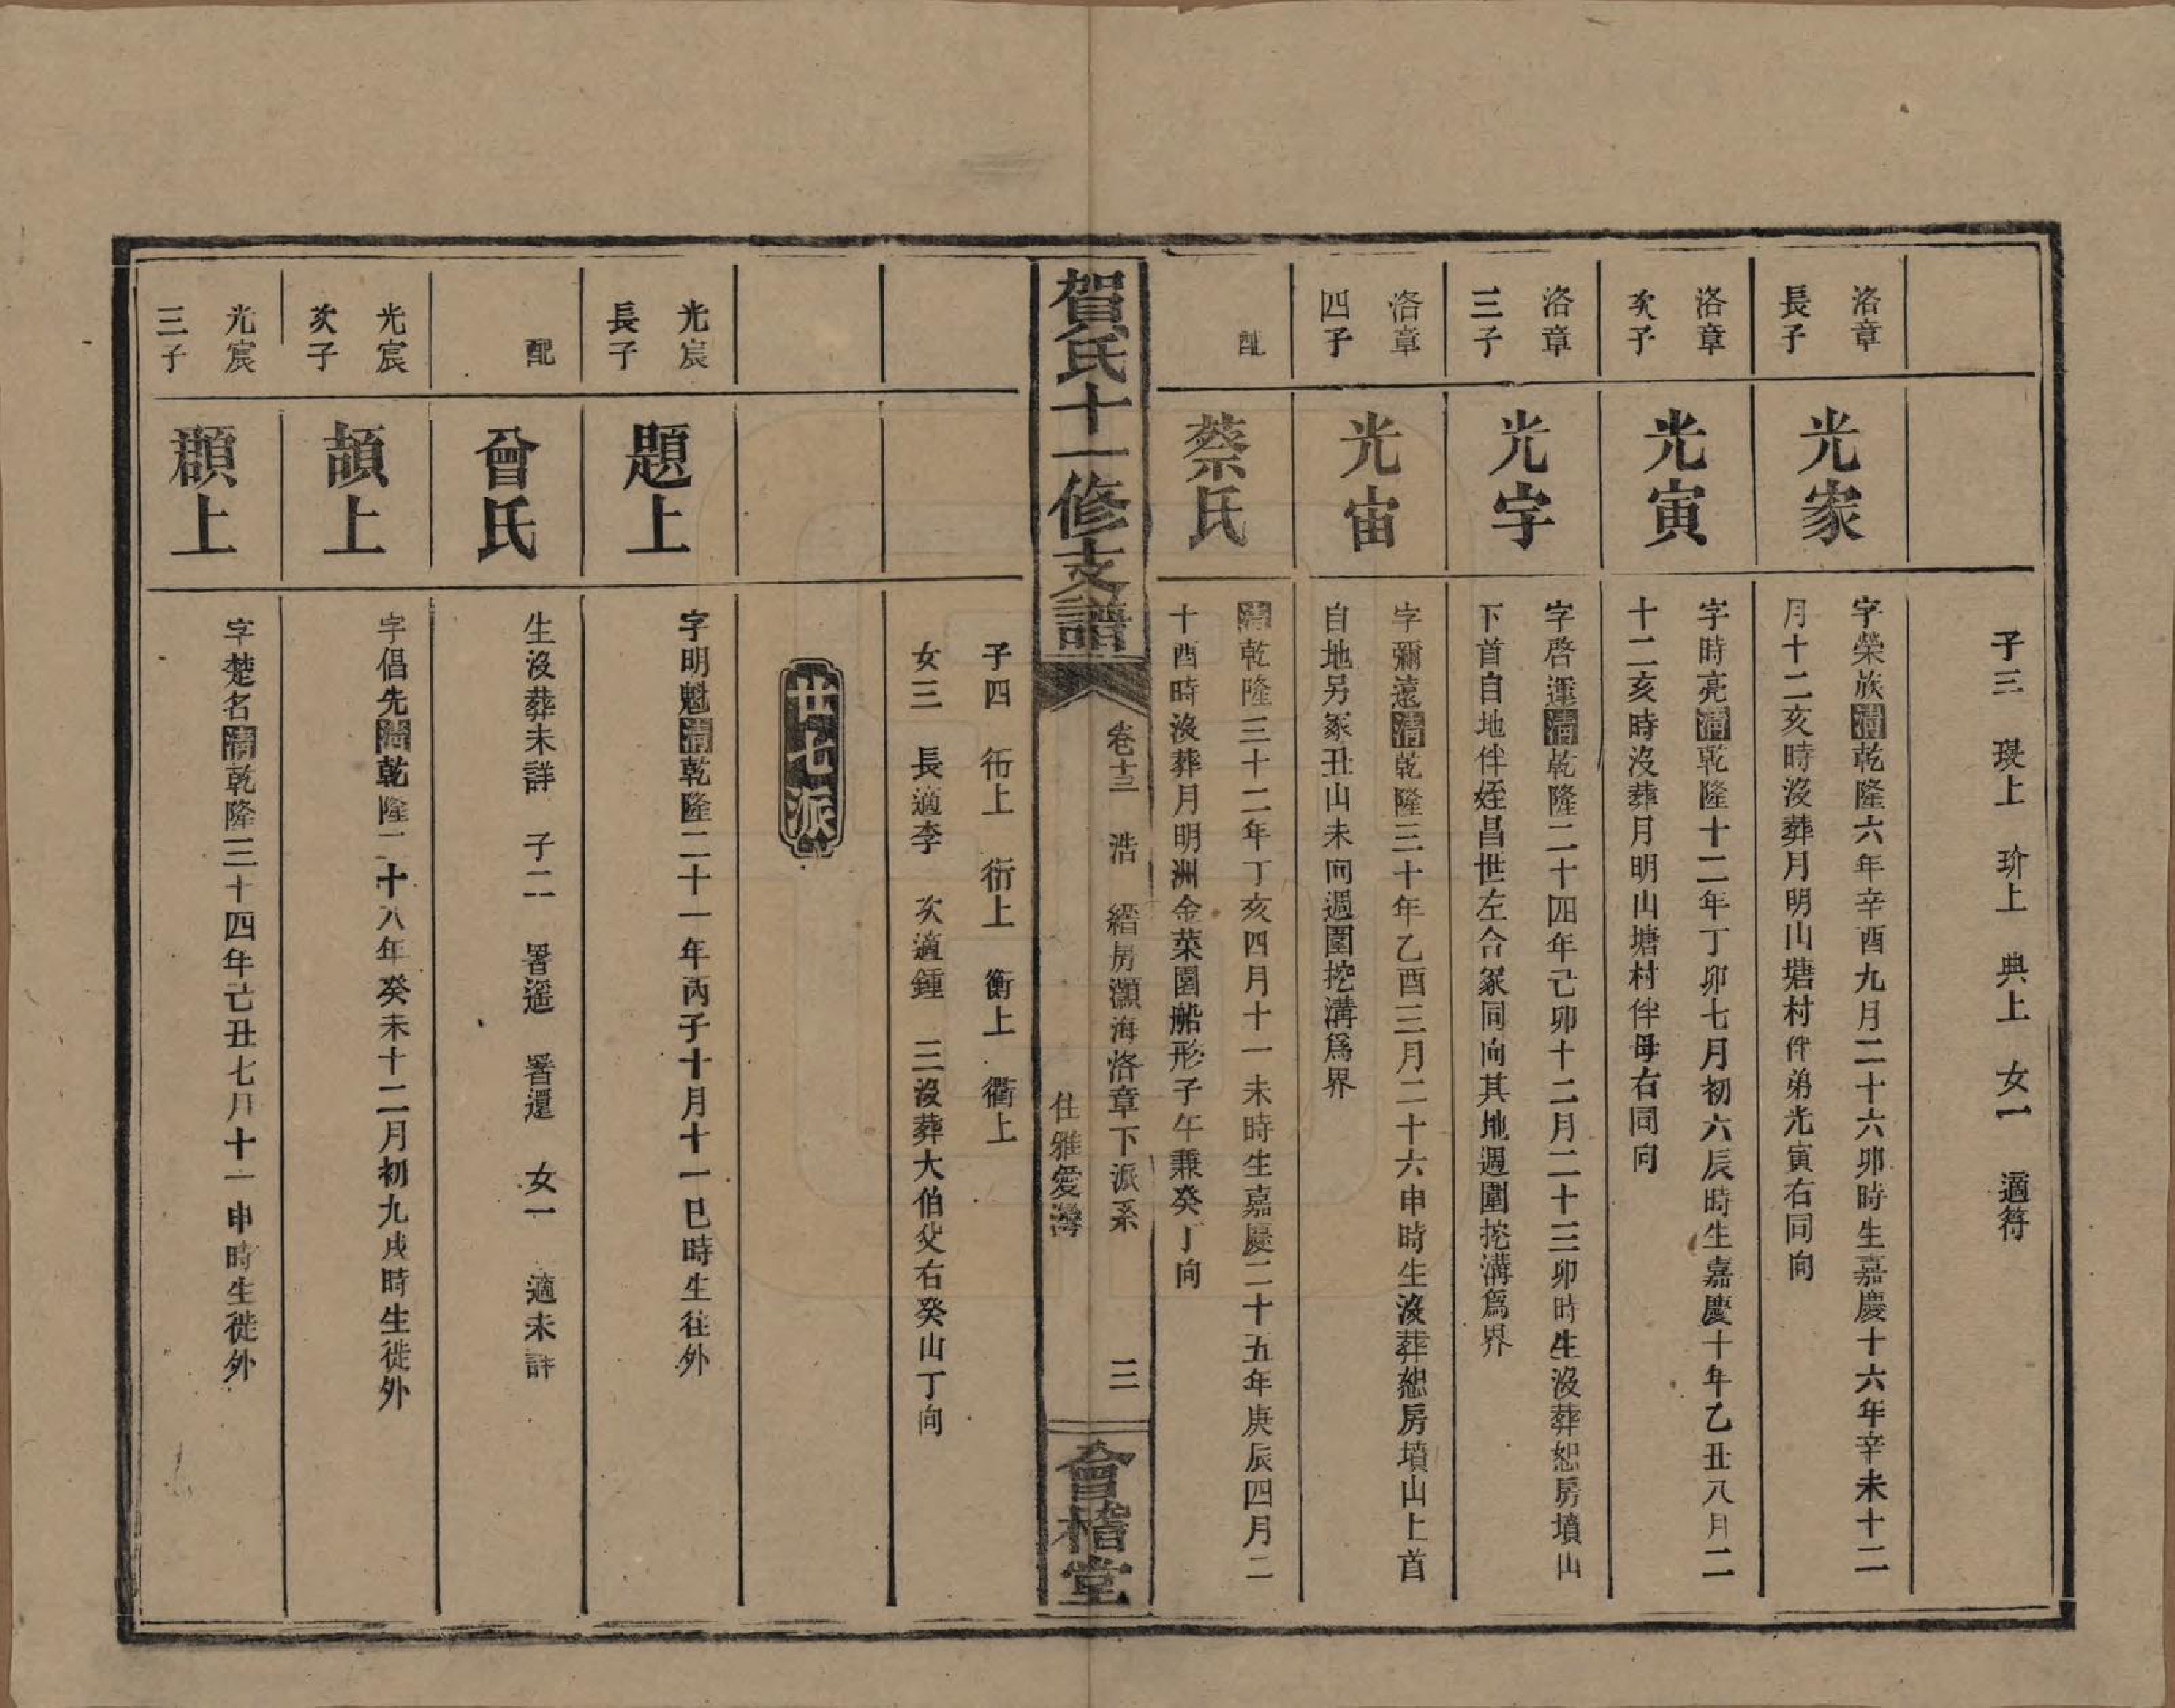 子三 琰上 玠上 典上 女一 適符
洛章
長子
光家
字榮族清乾隆六年辛酉九月二十六卯時生嘉慶十六年辛未十二
月十二亥時沒葬月明山塘村伴弟光寅右同向
洛章
次子
光寅
字時亮清乾隆十二年丁卯七月初六辰時生嘉慶十年乙丑八月二
十二亥時沒葬月明山塘村伴母右同向
洛章
三子
光字
字啓運清乾隆二十四年己卯十二月二十三卯時生沒葬恕房墳山
下首自地伴姪昌世左合冢同向其地週圍挖溝爲界
洛章
四子
光宙
字彌遠清乾隆三十年乙酉三月二十六申時生沒葬恕房墳山上首
自地另冢丑山未向週圍挖溝爲界
配
蔡氏
清乾隆三十二年丁亥四月十一未時生嘉慶二十五年庚辰四月二
十酉時沒葬月明洲金菜園船形子午兼癸丁向
賀氏十一修支譜
卷十三 浩 縉房灝海洛章下派系
住雅愛灣
三
會稽堂
子四 衎上 衏上 衡上 衢上
女三 長適李 次適鍾 三沒葬大伯父右癸山丁向
世七派
光宸
長子
題上
字明魁清乾隆二十一年丙子十月十一巳時生往外
配
曾氏
生沒葬未詳 子二 署遥 署還 女一 適未詳
光宸
次子
頡上
字倡先清乾隆二十八年癸未十二月初九戌時生徙外
光宸
三子
顴上
字楚名清乾隆三十四年己丑七月十一申時生徙外